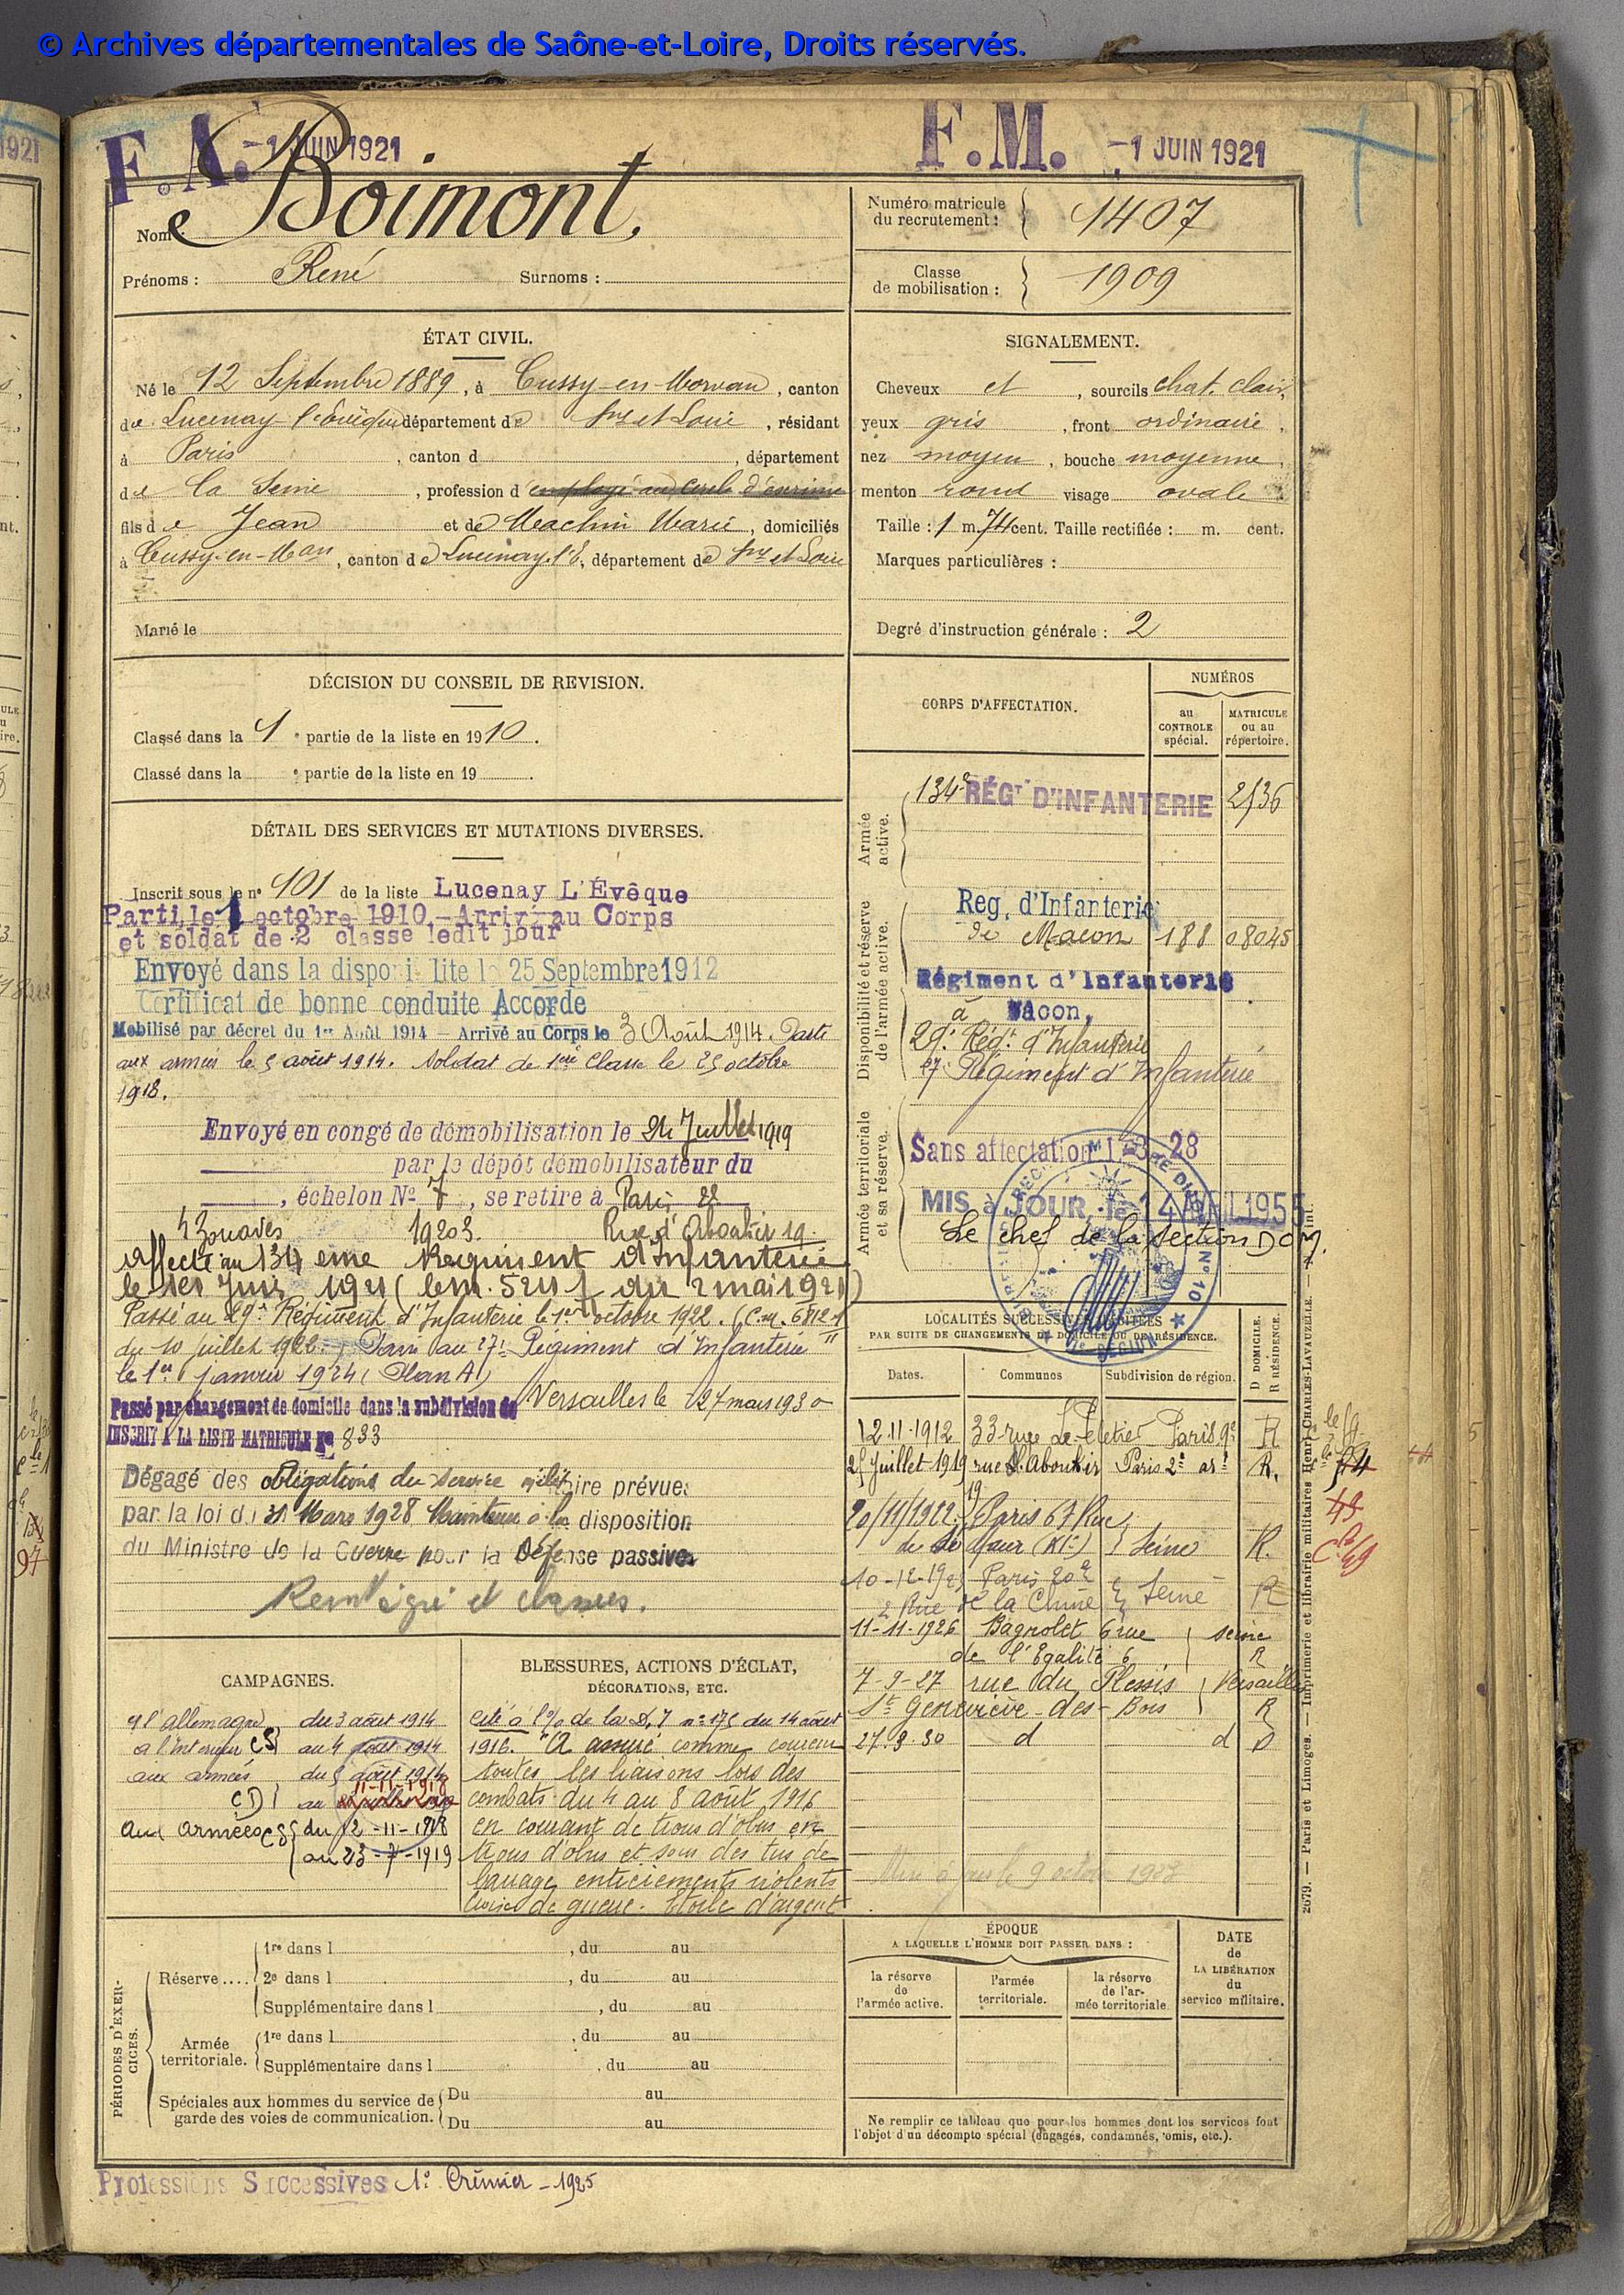 © Archives départementales de Saône-et-Loire, Droits réservés.
F.A. -1 JUIN 1921
F.M. -1 JUIN 1921
Nom : Boimont,
Prénoms : René Surnoms :
Numéro matricule du recrutement : 1407
Classe de mobilisation : 1909
ÉTAT CIVIL.
Né le 12 Septembre 1889, à Cussy-en-Morvan, canton
de Lucenay l'Evêque département de Sne et Loire, résidant
à Paris, canton d , département
de la Seine, profession d employé au cercle d'escrime
fils de Jean et de Machin Marie, domiciliés
à Cussy-en-Man, canton de Lucenay l'E, département de Sne et Loire
Marié le
SIGNALEMENT.
Cheveux et , sourcils chat. clair,
yeux gris, front ordinaire,
nez moyen, bouche moyenne,
menton rond visage ovale.
Taille : 1 m. 74 cent. Taille rectifiée : m. cent.
Marques particulières :
Degré d'instruction générale : 2
DÉCISION DU CONSEIL DE REVISION.
Classé dans la 1e partie de la liste en 1910.
Classé dans la e partie de la liste en 19 .
DÉTAIL DES SERVICES ET MUTATIONS DIVERSES.
Inscrit sous le no 101 de la liste Lucenay L'Évêque
Parti le 1 octobre 1910 - Arrivé au Corps
et soldat de 2 classe ledit jour
Envoyé dans la disponibilité le 25 Septembre 1912
Certificat de bonne conduite Accordé
Mobilisé par décret du 1er Août 1914 - Arrivé au Corps le 3 Août 1914. Parti
aux armées le 5 août 1914. Soldat de 1ère Classe le 25 octobre
1918.
Envoyé en congé de démobilisation le 24 Juillet 1919
par le dépôt démobilisateur du
, échelon No 7, se retire à Paris 2e
4 Zouaves 19203. Rue d'Aboukir 19.
Affecté au 134 eme Regiment d'Infanterie
le 1er Juin 1921 (le m. 5241 du 2 mai 1921)
Passé au 29e Régiment d'Infanterie le 1er octobre 1922. (C.M. 6812-1
du 10 juillet 1922. Passé au 27e Régiment d'Infanterie 11
le 1er janvier 1924 (Plan A)
Passé par changement de domicile dans la subdivision de Versailles le 27 mars 1930
INSCRIT A LA LISTE MATRICULE No 833
Dégagé des obligations du service militaire prévues
par la loi du 31 Mars 1928 Maintenu à la disposition
du Ministre de la Guerre pour la Défense passive
CORPS D'AFFECTATION.
NUMÉROS
au CONTROLE spécial.
MATRICULE ou au répertoire.
Armée active.
134e RÉGT D'INFANTERIE 2536
Disponibilité et réserve de l'armée active.
Reg. d'Infanterie
de Macon 188 08045
Régiment d'Infanterie
à Macon,
29e Régt d'Infanterie
27 Régiment d'Infanterie
Armée territoriale et sa réserve.
Sans affectation 28
MIS à JOUR, le 14 AVRIL 1955
Le chef de la section DOM.
LOCALITÉS SUCCESSIVES HABITÉES
PAR SUITE DE CHANGEMENTS DE DOMICILE OU DE RÉSIDENCE.
D DOMICILE. R RÉSIDENCE.
Dates. Communes Subdivision de région.
12.11.1912 33 rue Le Peletier Paris 9e R
25 Juillet 1919 rue d'Aboukir Paris 2e art R.
19
20/11/1922. Paris 67 Rue
Seine R.
10-12-1925 Paris 20e
2 Rue de la Chine Seine R
11-11-1926 Bagnolet 6 rue seine
de l'Egalité 6 R
7-9-27 rue du Plessis Versailles
Ste Geneviève-des-Bois R
27.3.30 d d D
CAMPAGNES.
c/ l'allemagne du 3 août 1914
à l'intérieur CS au 4 août 1914
aux armées du 5 août 1914
CD au 11-11-1918
aux armées CS du 12-11-1918
au 23-7-1919
BLESSURES, ACTIONS D'ÉCLAT,
DÉCORATIONS, ETC.
Cité à l'o/ de la d. 7 n° 175 du 14 août
1916. "A assuré comme coureur
toutes les liaisons lors des
combats du 4 au 8 août 1916
en courant de trous d'obus en
trous d'obus et sous des tirs de
barrage violents
Croix de guerre. Etoile d'argent
PÉRIODES D'EXERCICES.
Réserve.... 1re dans l , du au
2e dans l , du au
Supplémentaire dans l , du au
Armée territoriale. 1re dans l , du au
Supplémentaire dans l , du au
Spéciales aux hommes du service de garde des voies de communication. Du au
Du au
ÉPOQUE
A LAQUELLE L'HOMME DOIT PASSER DANS :
la réserve de l'armée active.
l'armée territoriale.
la réserve de l'armée territoriale
DATE de LA LIBÉRATION du service militaire.
Ne remplir ce tableau que pour les hommes dont les services font
l'objet d'un décompte spécial (engagés, condamnés, omis, etc.).
2679. — Paris et Limoges. — Imprimerie et librairie militaires Henri CHARLES-LAVAUZELLE.
Professions Successives 1° Crémier - 1925